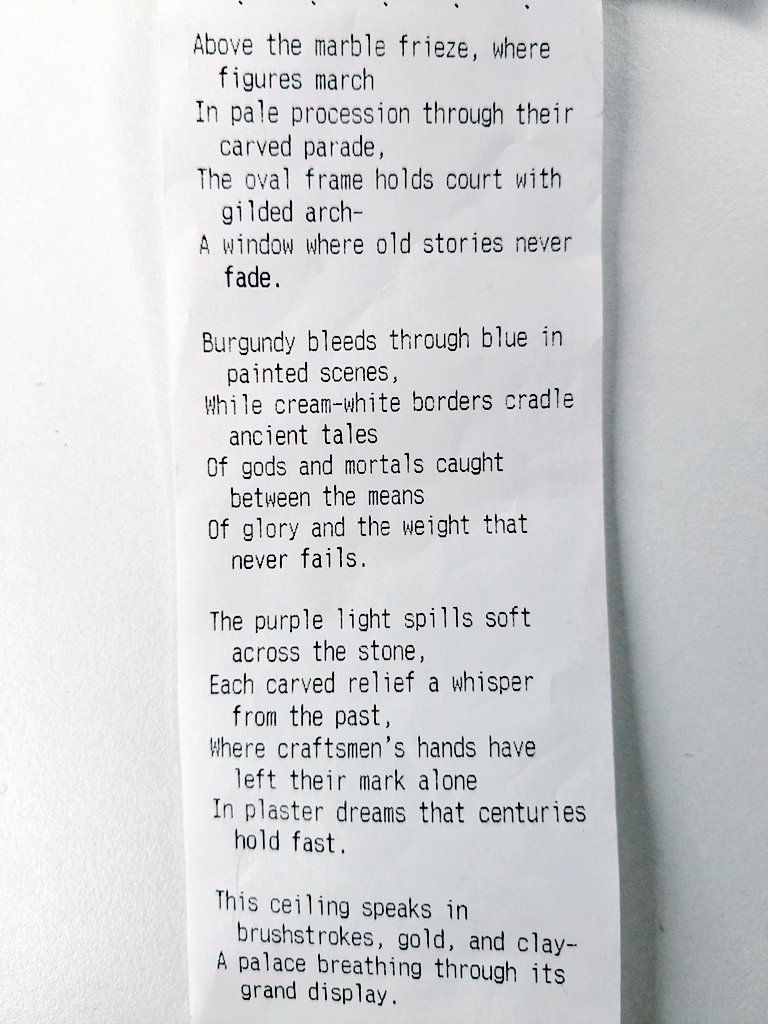 Above the marble frieze, where
figures march
In pale procession through their
carved parade,
The oval frame holds court with
gilded arch-
A window where old stories never
fade.
Burgundy bleeds through blue in
painted scenes,
While cream-white borders cradle
ancient tales
Of gods and mortals caught
between the means
Of glory and the weight that
never fails.
The purple light spills soft
across the stone,
Each carved relief a whisper
from the past,
Where craftsmen's hands have
left their mark alone
In plaster dreams that centuries
hold fast.
This ceiling speaks in
brushstrokes, gold, and clay-
A palace breathing through its
grand display.